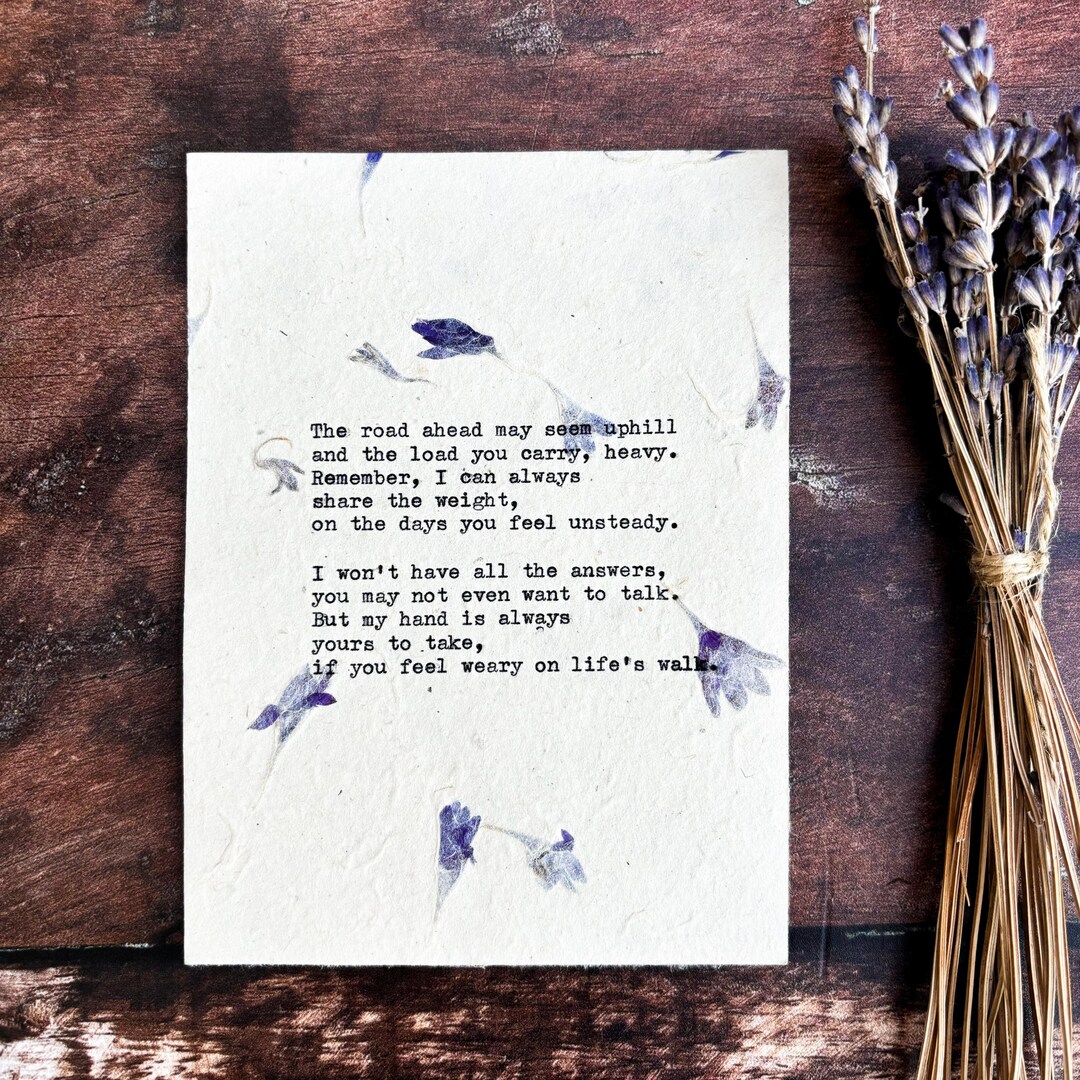 The road ahead may seem uphill
and the load you carry, heavy.
Remember, I can always
share the weight,
on the days you feel unsteady.

I won't have all the answers,
you may not even want to talk.
But my hand is always
yours to take,
if you feel weary on life's walk.